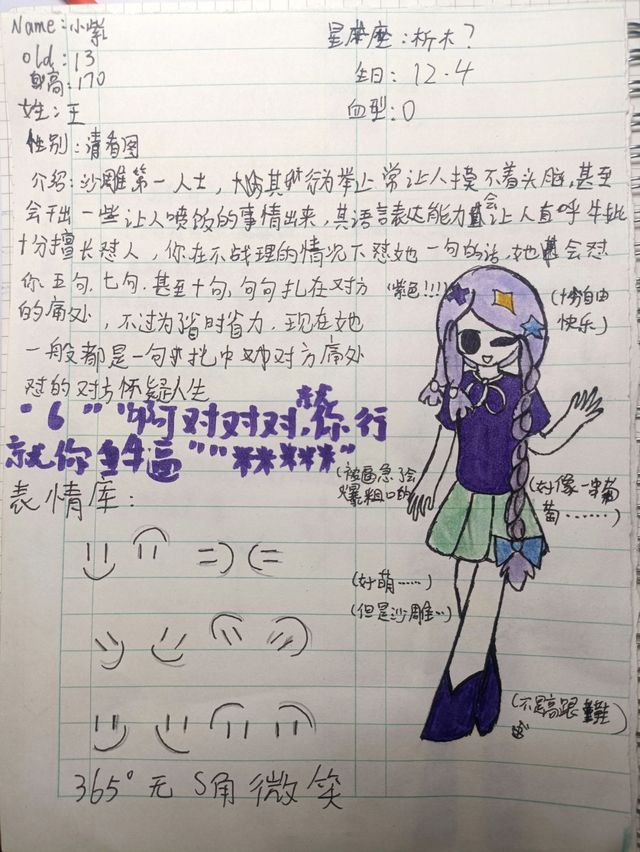 Name:小紫
星座:析木?
old:13
生日:12.4
身高:170
血型:O
姓:王
性别:请看图
介绍:沙雕第一人士,其行为举止常让人摸不着头脑,甚至
会干出一些让人喷饭的事情出来,其语言表达能力会让人直呼牛批
十分擅长怼人,你在不战理的情况下怼她一句的话,她会怼
你五句.七句.甚至十句,句句扎在对方
的痛处,不过为了省时省力,现在她
一般都是一句扎中对方痛处
怼的对方怀疑人生
紫色!!!
(十分自由
快乐)
"6" "啊对对对,你行
就你牛逼" "*****"
(被逼急了会
爆粗口的
(好像一串葡
萄……)
表情库:
(好萌……)
(但是沙雕…)
(不是高跟鞋)
365°无S角微笑